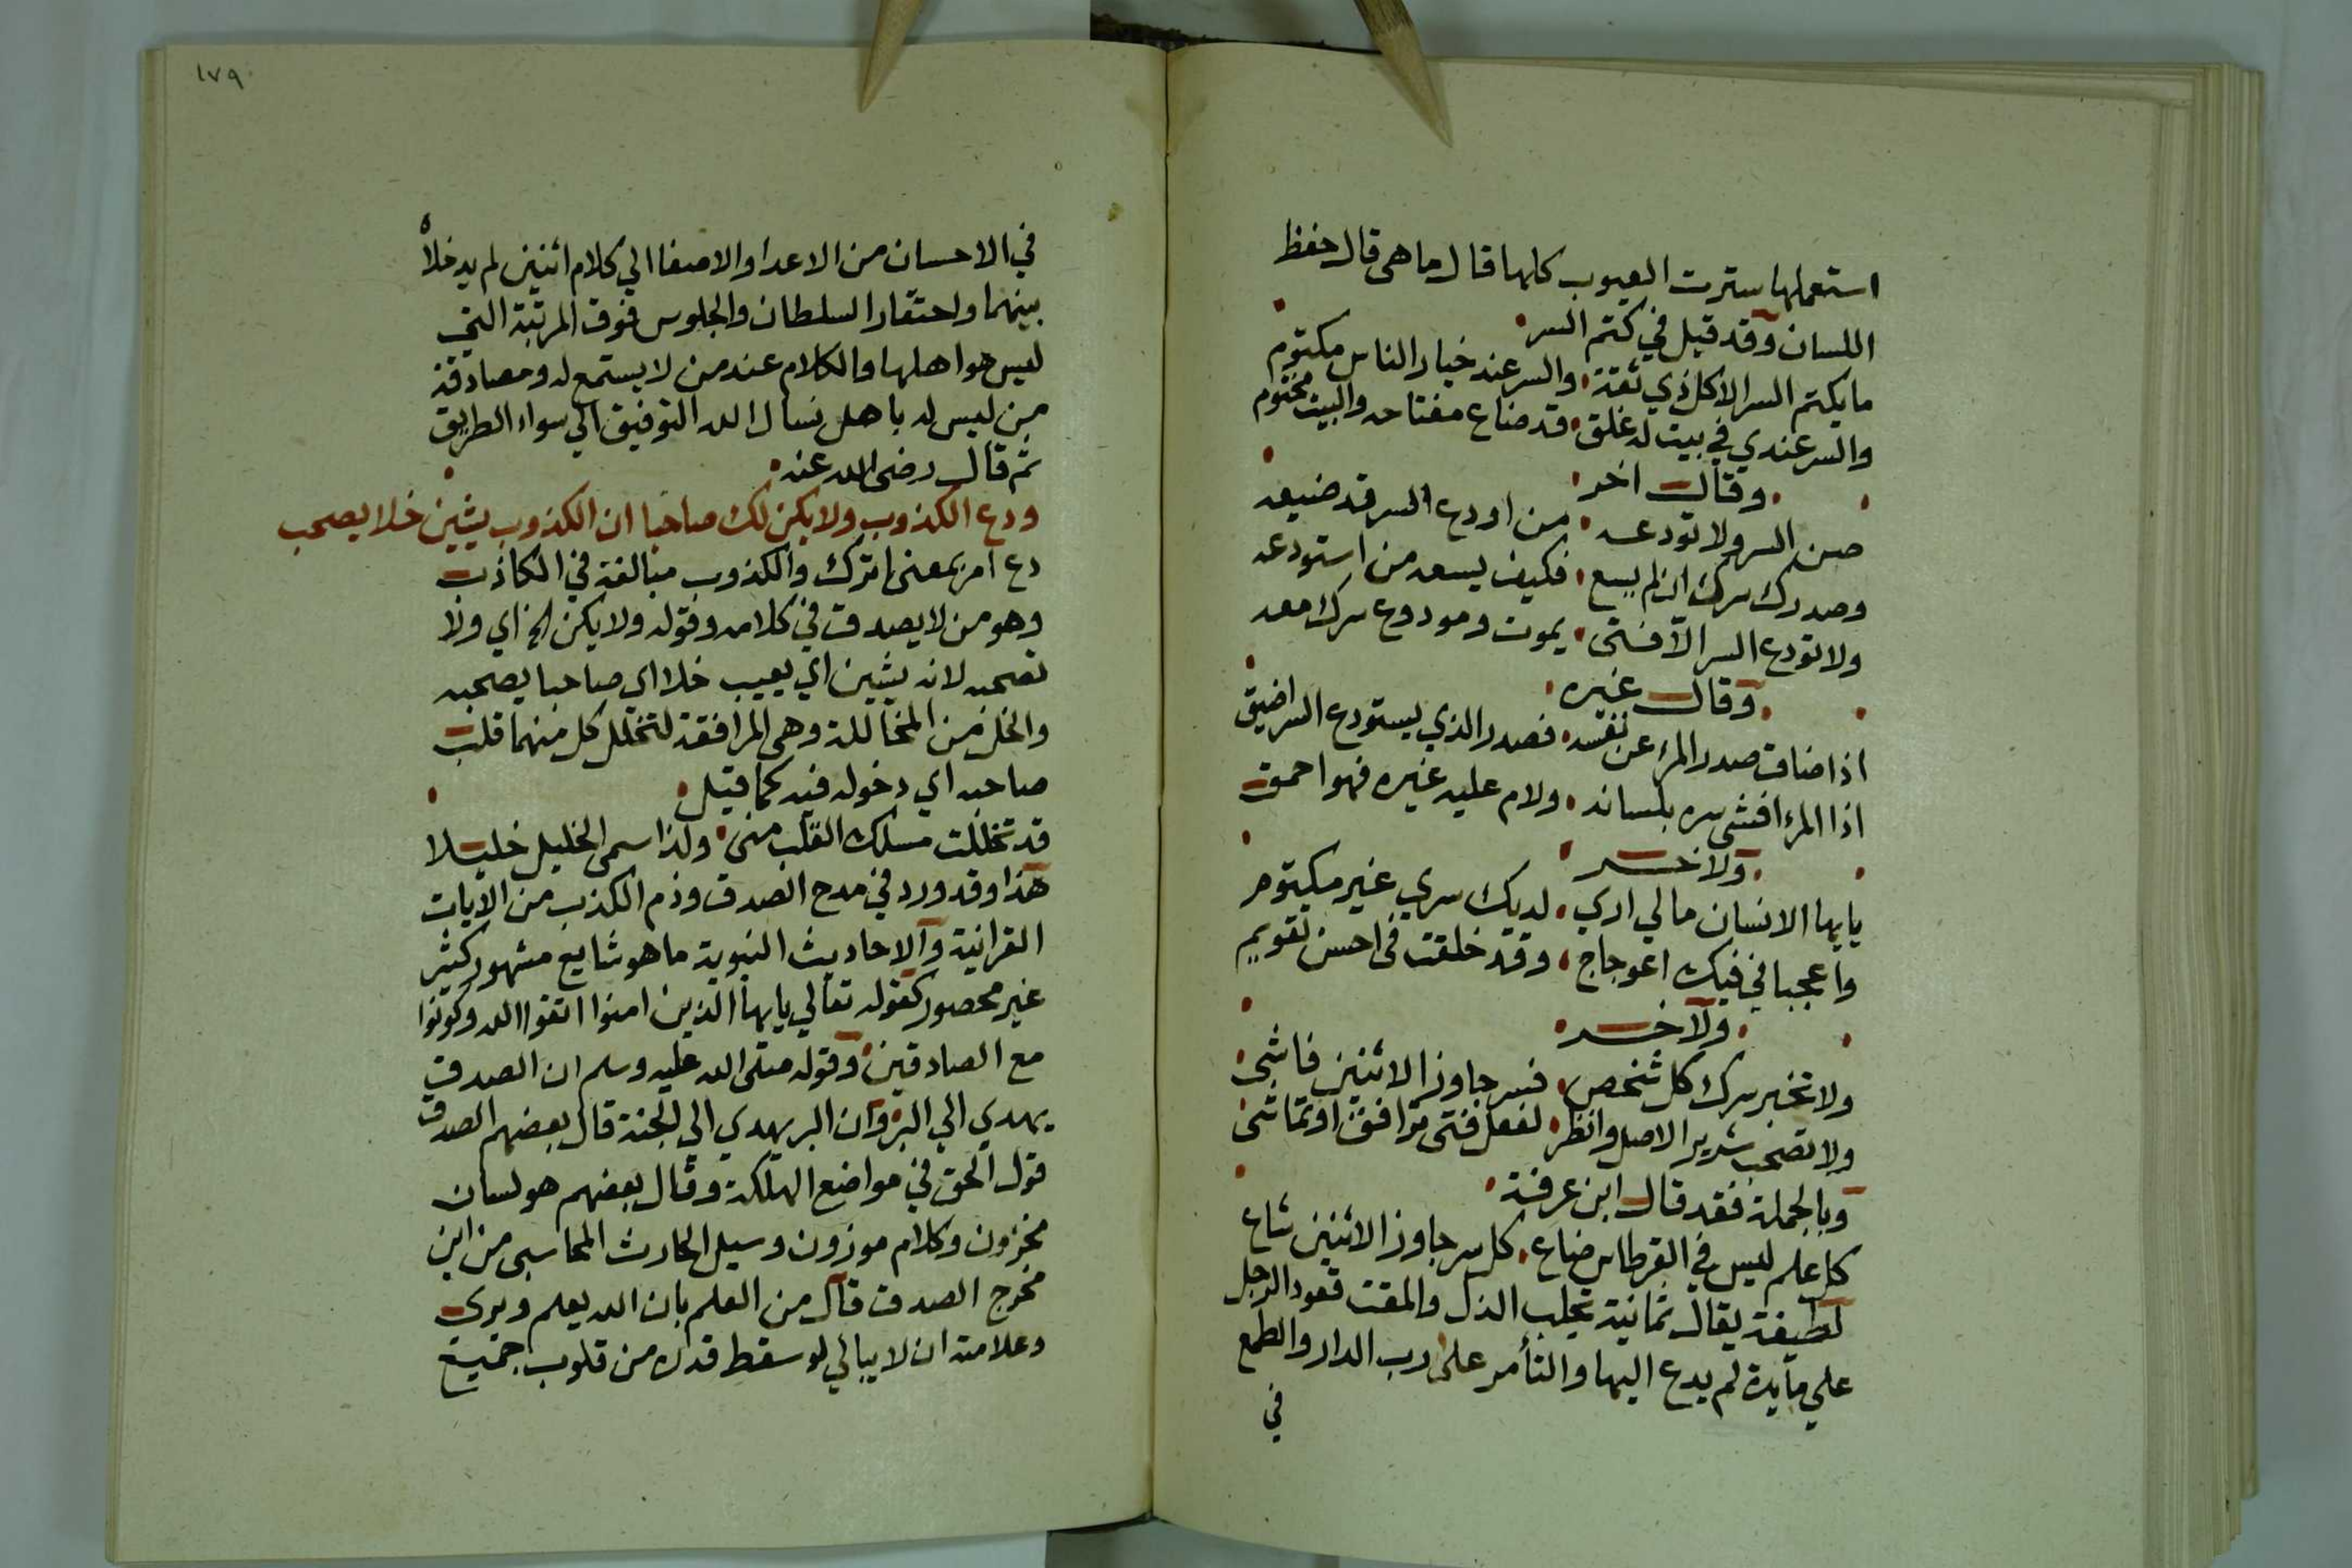 استعملها سترت العيوب كلها قال ما هى قال حفظ
اللسان وقد قيل في كتم السر
ما يكتم السر الا كل ذي ثقة والسر عند خيار الناس مكتوم
والسر عندي في بيت له غلق قد ضاع مفتاحه والبيت مختوم
وقال اخر
صن السر ولا تودعه من اودع السر قد ضيعه
وصدرك سرك ان لم يسع فكيف يسعه من استودعه
ولا تودع السر الا فتى يموت ومودوع سرك معه
وقال غيره
اذا ضاق صدر المرء عن نفسه فصدر الذي يستودع السر اضيق
اذا المرء افشى سره بلسانه ولام عليه غيره فهو احمق
ولاخر
يايها الانسان مالي ارى لديك سري غير مكتوم
واعجبا في فيك اعوجاج وقد خلقت فى احسن تقويم
ولاخر
ولا تخبر سرك كل شخص فسر جاوز الاثنين فاشى
ولا تصحب شرير الاصل وانظر لفعل فتى توافق او تماشى
وبالجملة فقد قال ابن عرفة
كل علم ليس في القرطاس ضاع كل سر جاوز الاثنين شاع
لطيفة يقال ثمانية تجلب الذل والمقت قعود الرجل
علي مآيدة لم يدع اليها والتأمر على رب الدار والطمع
في
١٧٩
في الاحسان من الاعدا والاصغا الي كلام اثنين لم يدخلاه
بينهما واحتقار السلطان والجلوس فوق المرتبة التي
ليس هو اهلها والكلام عند من لا يستمع له ومصادقة
من ليس له باهل نسال الله التوفيق الي سواء الطريق
ثم قال رضى الله عنه
ودع الكذوب ولا يكن لك صاحبا ان الكذوب يشين خلا يصحب
دع امر بمعنى اترك والكذوب مبالغة في الكاذب
وهو من لا يصدق في كلامه وقوله ولا يكن الخ اي ولا
تصحبه لانه يشين اي يعيب خلا اي صاحبا يصحبه
والخل من المخاللة وهى المرافقة لتخلل كل منهما قلب
صاحبه اي دخوله فيه كما قيل
قد تخللت مسلك القلب منى ولذا سمى الخليل خليلا
هذا وقد ورد في مدح الصدق وذم الكذب من الايات
القرانية والاحاديث النبوية ما هو شايع مشهور كثير
غير محصور كقوله تعالي يايها الذين امنوا اتقوا الله وكونوا
مع الصادقين وقوله صلى الله عليه وسلم ان الصدق
يهدي الي البر وان البر يهدي الي الجنة قال بعضهم الصدق
قول الحق في مواضع الهلكة وقال بعضهم هو لسان
مخزون وكلام موزون وسيل الحارث المحاسبى من اين
مخرج الصدق قال من العلم بان الله يعلم ويرى
وعلامته ان لا يبالي لو سقط قدره من قلوب جميع